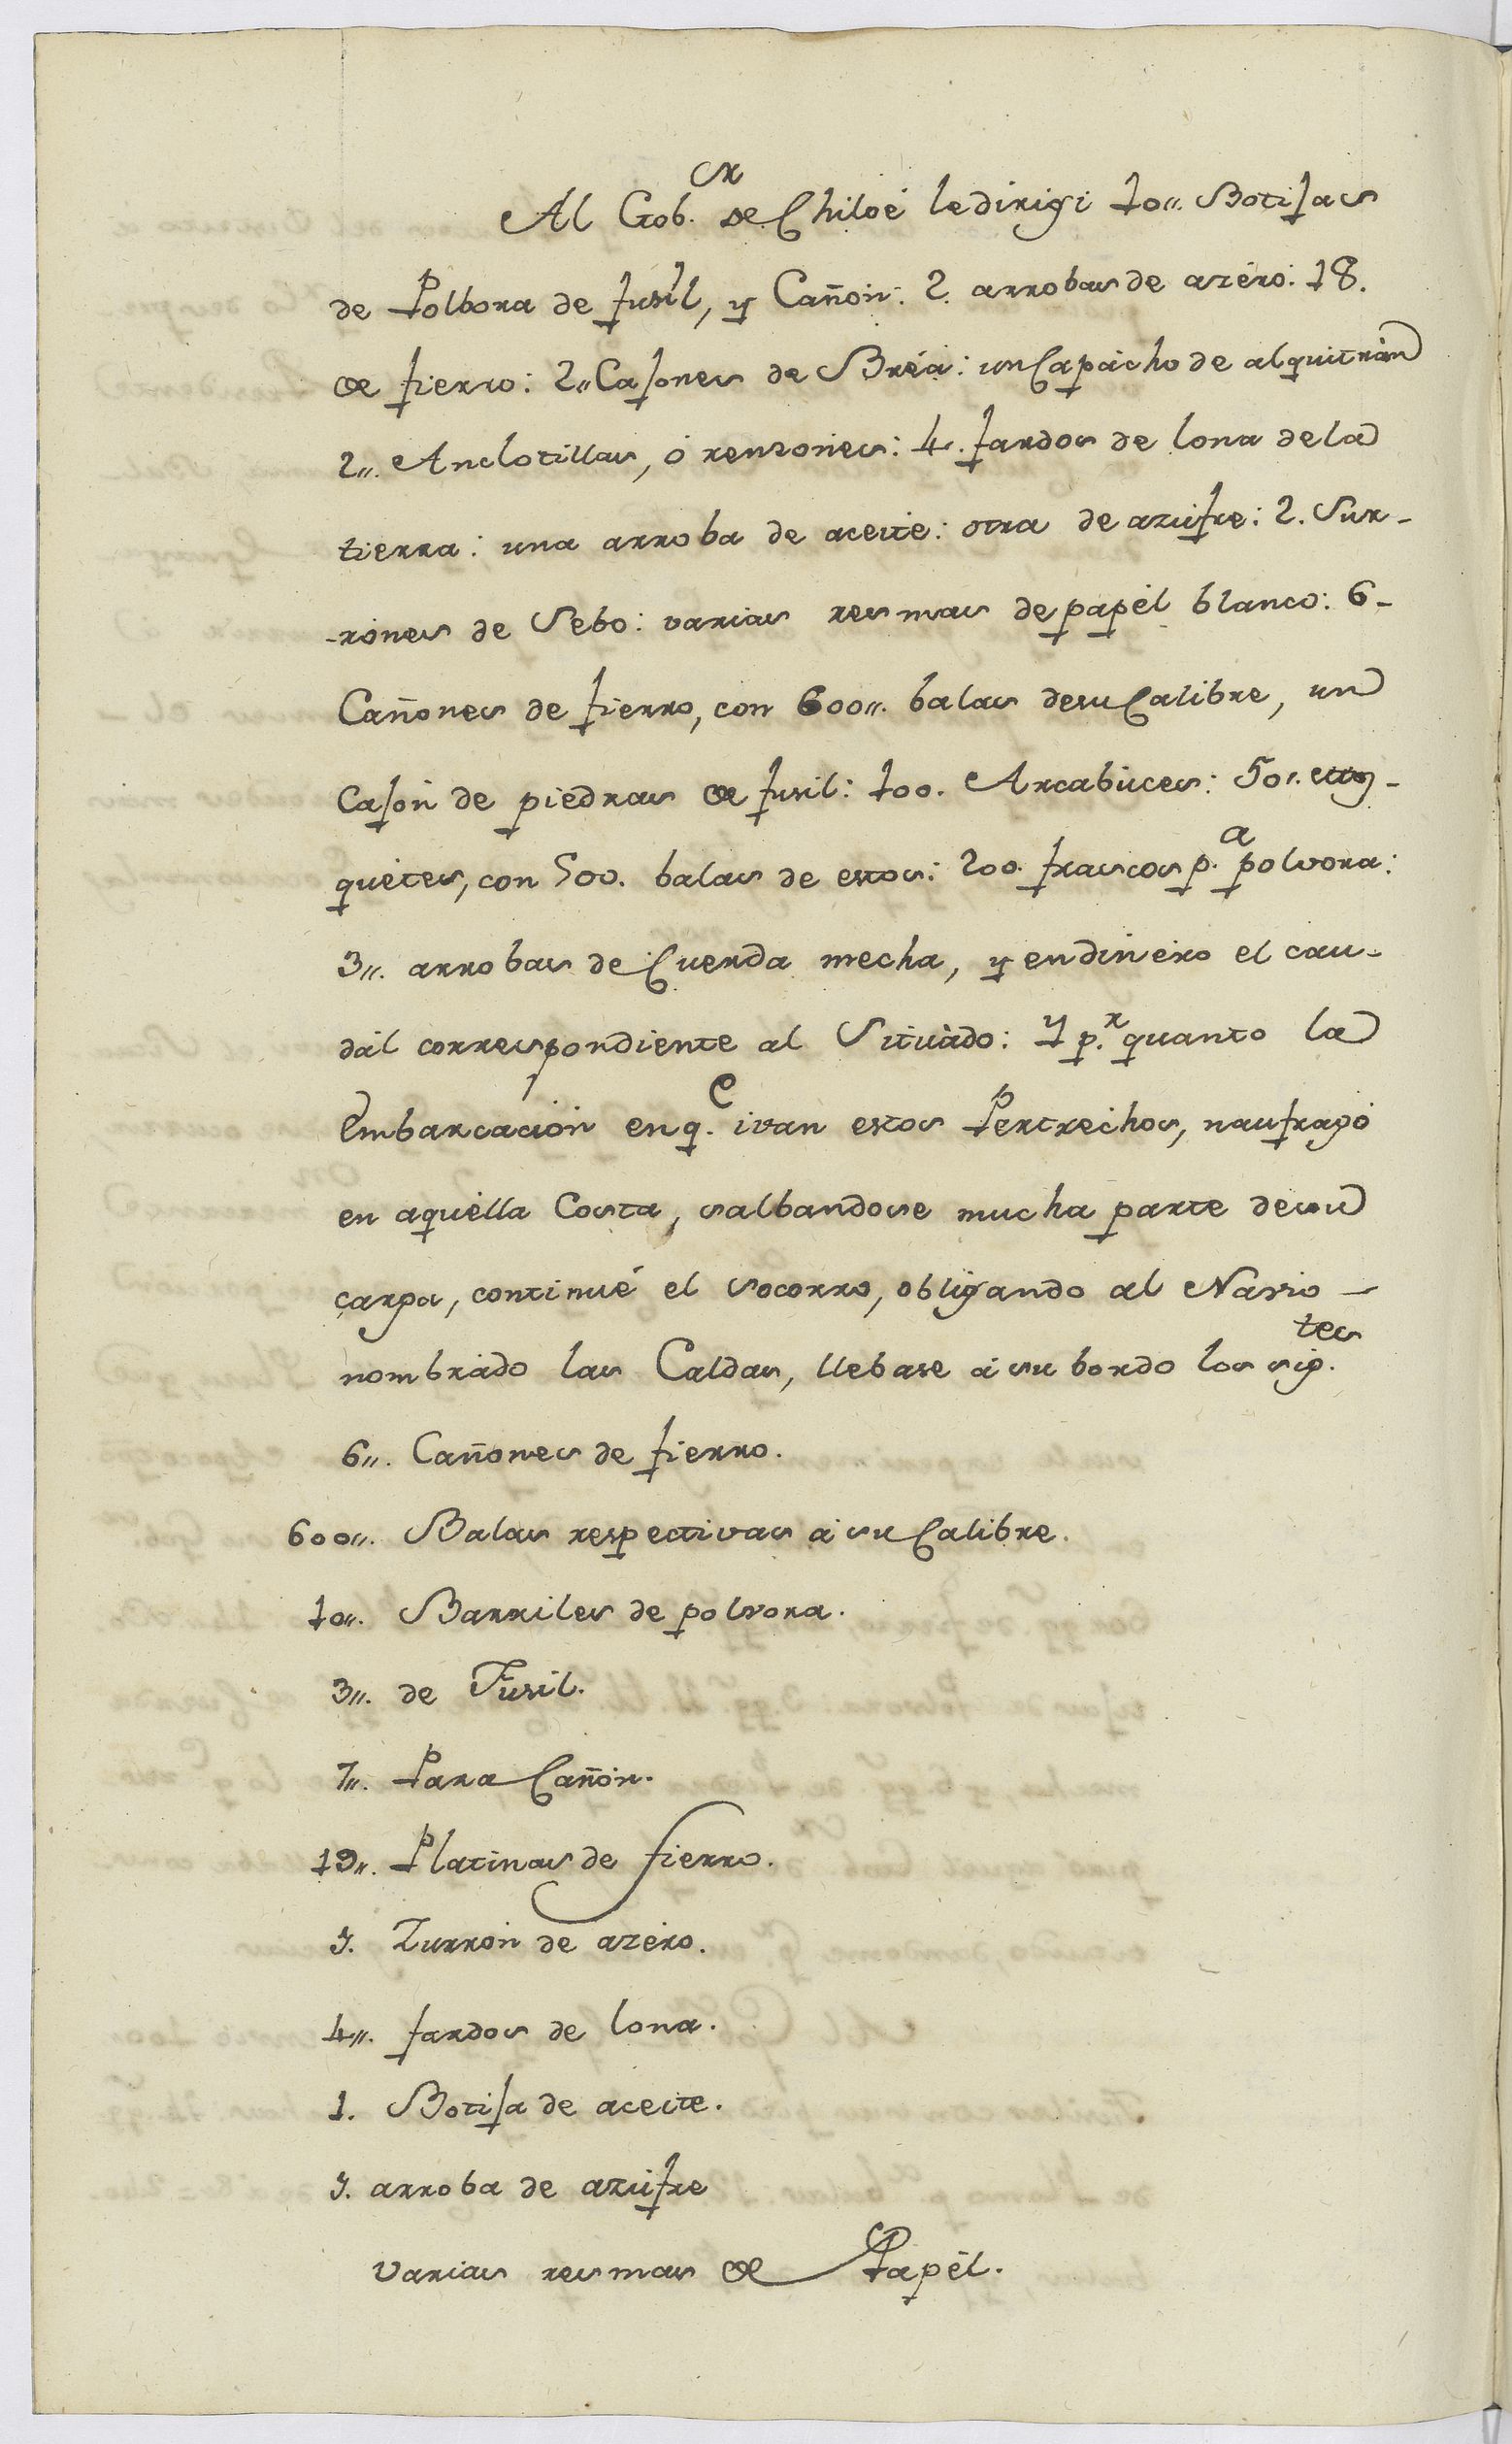 Al Gob.or de Chiloé le dirigí 10,, Botijas
de Polbora de fusil, y Cañon: 2. arrobas de azéro: 18.
de fierro: 2,, Cajones de Bréa: un Capácho de alquitrán
2,,. Anclotillas, ó rensones: 4. fardos de lona de la
tierra: una arroba de aceite: otra de azúfre: 2. Sur-
-rónes de Sebo: varias resmas de papél blanco: 6-
Cañones de fierro, con 600,,. balas de su Calibre, un
Cajón de piedras de fusil: 100. Arcabúces: 50,,. Mos-
quétes, con 500. balas de estos: 200. frascos p.a polvora:
3,,. arrobas de Cuerda mecha, y en dinéro el cau-
dál correspondiente al Situádo: Y p.r quanto la
Embarcación en q.e ivan estos Pertréchos, naufragó
en aquélla Costa, salbandose mucha parte de su
carga, continué el socorro, obligando al Navio -
nombrádo las Caldas, llebase á su bordo los sig.tes
6,,. Cañones de fierro.
600,,. Balas respectivas á su Calibre.
10,,. Barriles de polvora.
3,,. de Fusil.
7,,. Para Cañón.
19,,. Platinas de fierro.
1. Zurrón de azéro.
4,,. fardos de lona.
1. Botija de aceite.
1. arroba de azúfre
varias resmas de Papél.